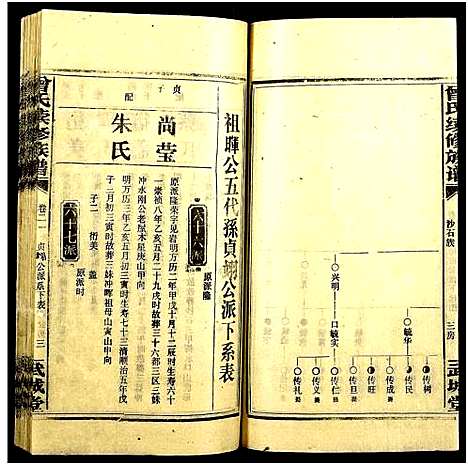 曾氏续修族谱
沙石族
三房
三 武城堂
兴明
毓华
口毓实
传树
传民
传成
传旺
传旦
传仁
传义
传礼
祖暉公五代孫貞翊公派下系表
六十六派
原派隆
貞
子
配
尚莹
朱氏
原派隆荣字见岩明万历二年甲戌十月十二辰时生寿六十
一崇祯八年乙亥五月二十九戌时故葬三十六都三区三妹
冲水刚公老屋木星庚山甲向
明万历三年乙亥五月初三寅时生寿七十三清顺治五年戊
子二月初三寅时故葬三妹冲晖祖母山寅山申向
子二 衍美 盖
六十七派
原派时
曾氏续修族谱
卷二
貞翊公派系下表
三
武城堂